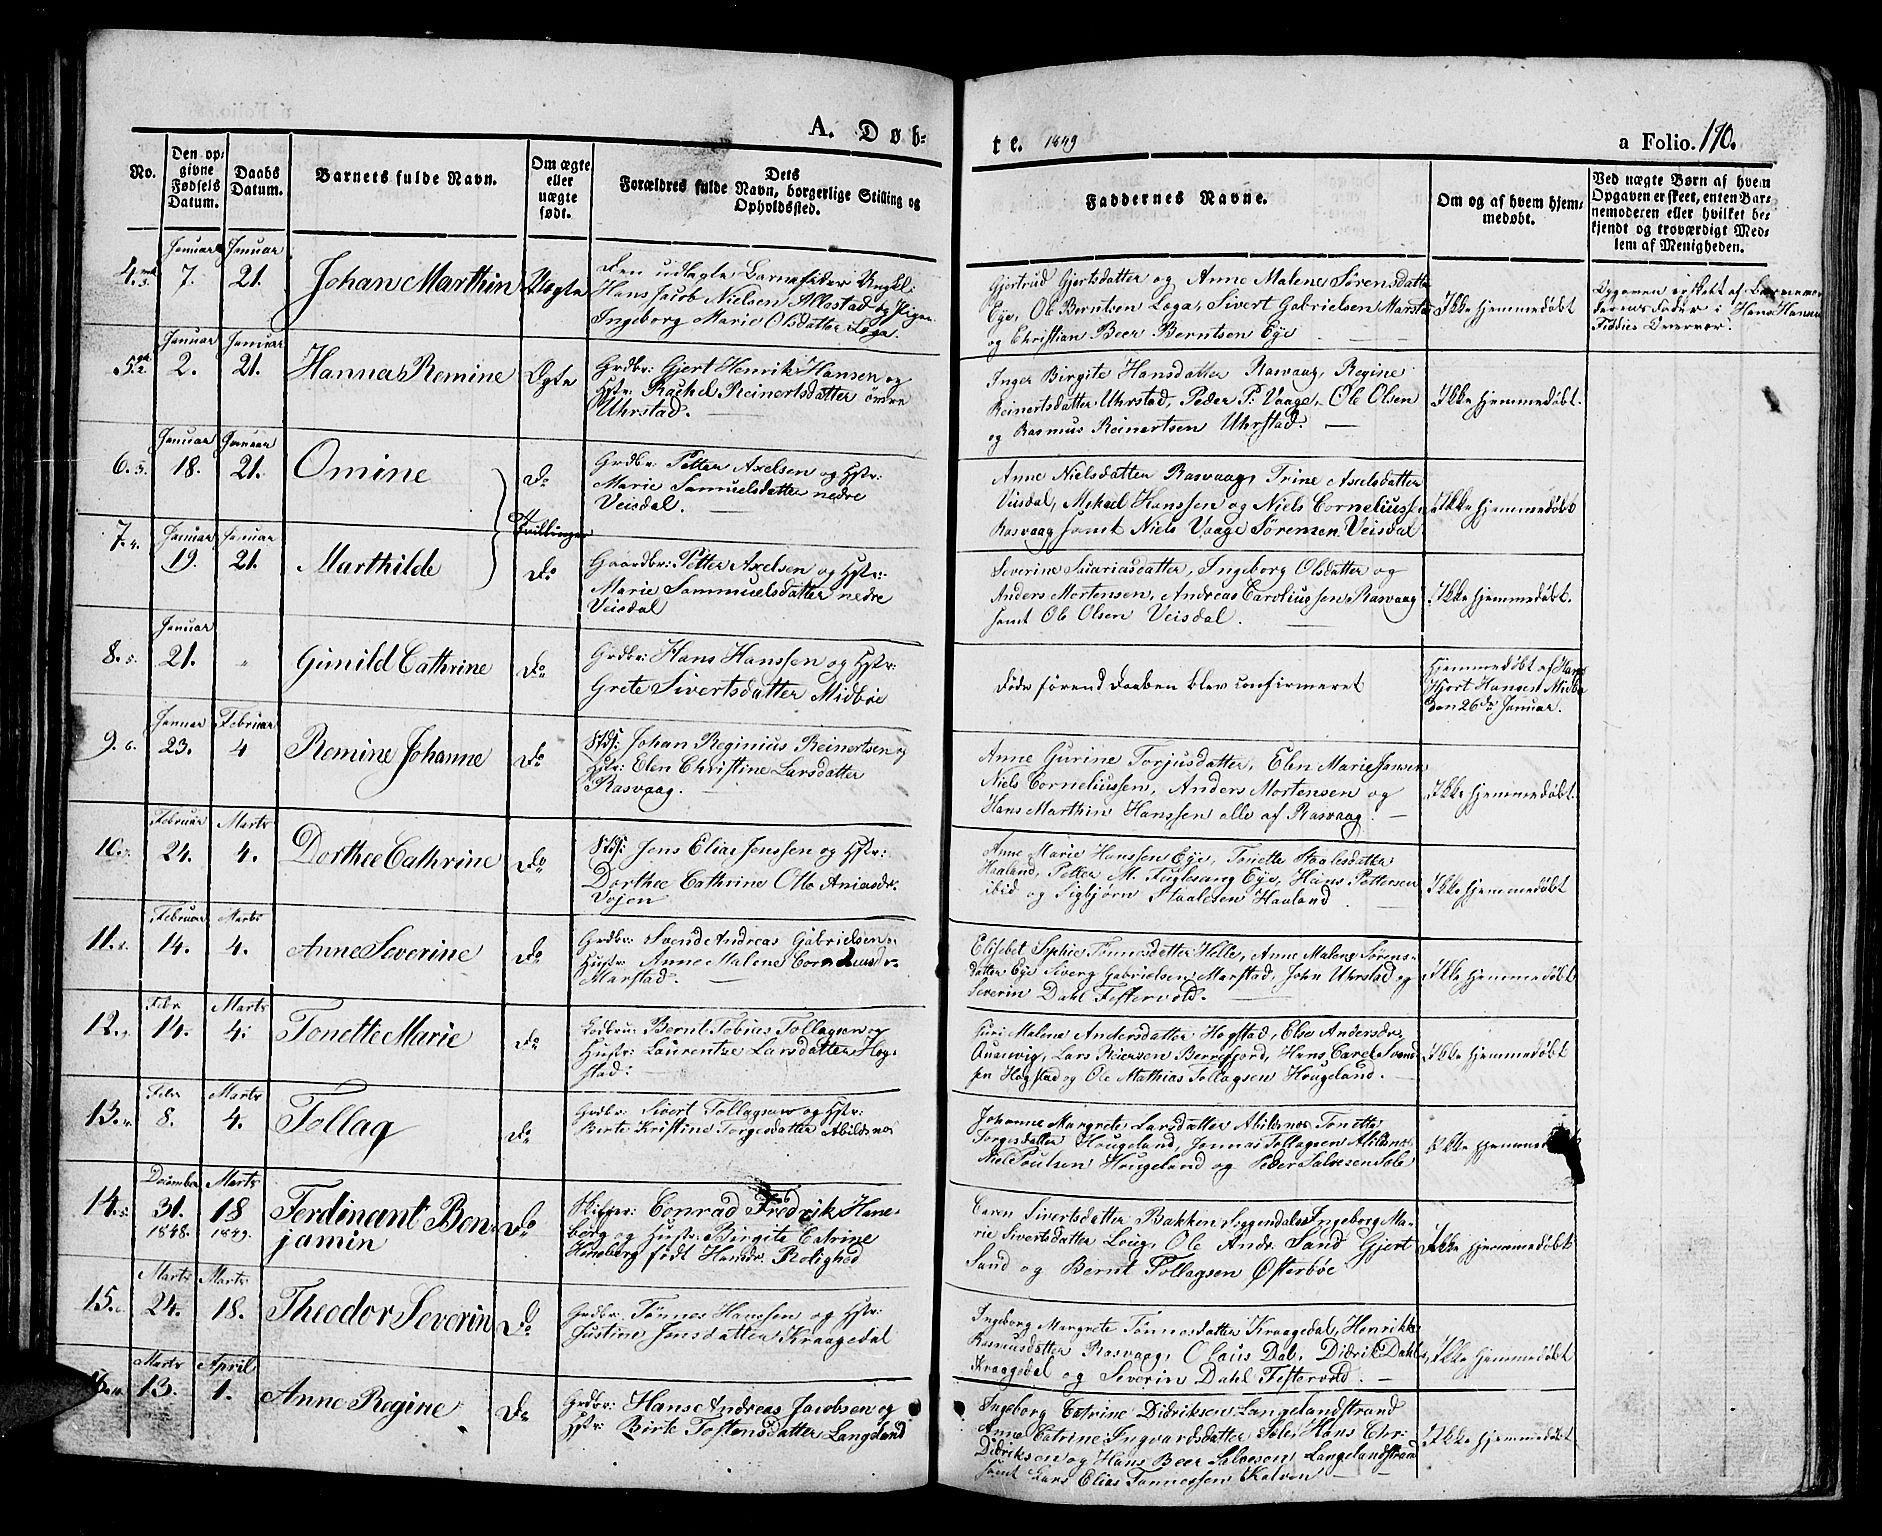 A. Døb-
te. 1849
a Folio. 190.
No.
Den op-
givne
Fødsels
Datum.
Daabs
Datum.
Barnets fulde Navn.
Om ægte
eller
uægte
født.
Dets
Forældres fulde Navn, borgerlige Stilling og
Opholdssted.
Faddernes Navne.
Om og af hvem hjem-
medøbt.
Ved uægte Børn af hvem
Opgaven er skeet, enten Bar-
nemoderen eller hvilket be-
kjendt og troværdigt Med-
lem af Menigheden.
4. Januar 7. Januar 21. Johan Marthin Uægte
Den udlagte Barnefader Ungkl:
Hans Jacob Nielsen Allestad og Pigen
Ingeborg Marie Olsdatter Lega.
Gjertrud Gjertsdatter og Anne Malene Sørensdatter
Eye, Ole Berntsen Lega, Sivert Gabrielsen Marstad
og Christian Beer Berntsen Eye
Ikke hjemmedøbt
Opgaven er skeet af Barnemo-
derens Fader i Hans Hannem
Fiddies Overvær.
5. Januar 2. Januar 21. Hanna Remine Ægte
Grdbr: Gjert Henrik Hansen og
Hstr: Rachel Reinertsdatter övre
Uhrstad.
Inger Birgite Hansdatter Rasvaag, Regine
Reinertsdatter Uhrstad, Peder P: Vaage, Ole Olsen
og Rasmus Reinertsen Uhrstad.
Ikke hjemmedøbt.
6. Januar 18. Januar 21. Omine Do
Tvillinger
Grdbr: Petter Axelsen og Hstr:
Marie Samuelsdatter nedre
Veisdal.
Anne Nielsdatter Rasvaag, Trine Axelsdatter
Veisdal, Mikael Hanssen og Niels Corneliussen
Rasvaag samt Niels Vaage Sørensen Veisdal
Ikke hjemmedøbt
7. Januar 19. Januar 21. Marthilde Do
Gaardbr: Petter Axelsen og Hstr:
Marie Sammuelsdatter nedre
Veisdal
Severine Zacariasdatter, Ingeborg Olsdatter og
Anders Mortensen, Andreas Caroliussen Rasvaag
samt Ole Olsen Veisdal.
Ikke hjemmedøbt.
8. Januar 21. " Gunild Cathrine Do
Grdbr: Hans Hanssen og Hstr:
Grete Sivertsdatter Midbøe
Døde førend Daaben blev confirmeret
Hjemmedøbt af Hans
Hjort Hansen Midbø
den 26de Januar.
9. Januar 23. Februar 4 Remine Johanne Do
Stds: Johan Reginius Reinertsen og
Hstr: Elen Christine Larsdatter
Rasvaag.
Anne Gurine Torjusdatter, Elen Marie Jansen
Niels Corneliussen, Anders Mortensen og
Hans Marthin Hanssen alle af Rasvaag.
Ikke hjemmedøbt.
10. Februar 24. Marts 4. Dorthee Cathrine Do
Stds: Jens Elias Jenssen og Hstr:
Dorthee Cathrine Otto Aniasdr.
Dojen
Anne Marie Hanssen Eye, Tonette Staalesdatter
Haaland, Petter M. Fuglesang Eye, Hans Pettersen
ibid og Sigbjørn Staalesen Haaland.
Ikke hjemmedøbt
11. Februar 14. Marts 4. Anne Severine Do
Grdbr: Svend Andreas Gabrielsen og
Hustr: Anne Malene Corneliusdr.
Marstad.
Elisebet Sophie Tønnesdatter Helle, Anne Malene Sørens-
datter Eye Siverg Gabrielsen Marstad, John Uhrstad og
Severin Dahl Festervold.
Ikke hjemmedøbt
12. Febr 14. Marts 4. Tonette Marie Do
Godbr: Bernt Tobias Tollagsen og
Hustr: Laurentze Larsdatter Hog-
stad:
Guri Malene Andersdatter Hogstad, Else Andersdr.
Quanvig, Lars Reiersen Berrefjord, Hans Carel Svend-
sen Hogstad og Ole Mathias Tollagsen Hougeland.
Ikke hjemmedøbt
13. Febr 8. Marts 4. Tollag Do
Grdbr: Sivert Tollagsen og Hstr:
Birte Kristine Torgesdatter Abildsnes
Johanne Margrete Larsdatter Abildsnes Tonette
Torgesdatter Hougeland, Jonnas Tollagsen Abildsnes
Niel Poulsen Hougeland og Peder Salvesen Sole
Ikke hjemmedøbt
14. December 31. 1848. Marts 18 1849. Ferdinant Ben-
jamin Do
Skipper: Conrad Fredrik Hane-
borg og Hustr: Birgite Catrine
Haneborg født Hansdr. Rolighed
Caren Sivertsdatter Bakken Siggendalen Ingeborg Ma-
rie Sivertsdatter Loug, Ole Andr. Sand Gjert
Sand og Bernt Tollagsen Østerbøe
Ikke hjemmedøbt
15. Marts 24. Marts 18. Theodor Severin Do
Grdbr: Tønnes Hanssen og Hstr:
Justine Jensdatter Kraagedal
Ingeborg Margrete Tønnesdatter Kraagedal, Henrikke
Rasmusdatter Rasvaag, Olaus Dal, Didrik Dahl
Kraagedal og Severin Dahl Festervold.
Ikke hjemmedøbt
16. Marts 13. April 1. Anne Regine Do
Grdbr: Hans Andreas Jacobsen og
Hstr: Birte Tostensdatter Langeland
Ingeborg Catrine Didriksen Langelandstrand
Anne Catrine Ingvardsdatter Sole, Hans Chr:
Didriksen og Hans Beer Salvesen Langelandstrand
samt Lars Elias Tønnessen Kalven
Ikke hjemmedøbt